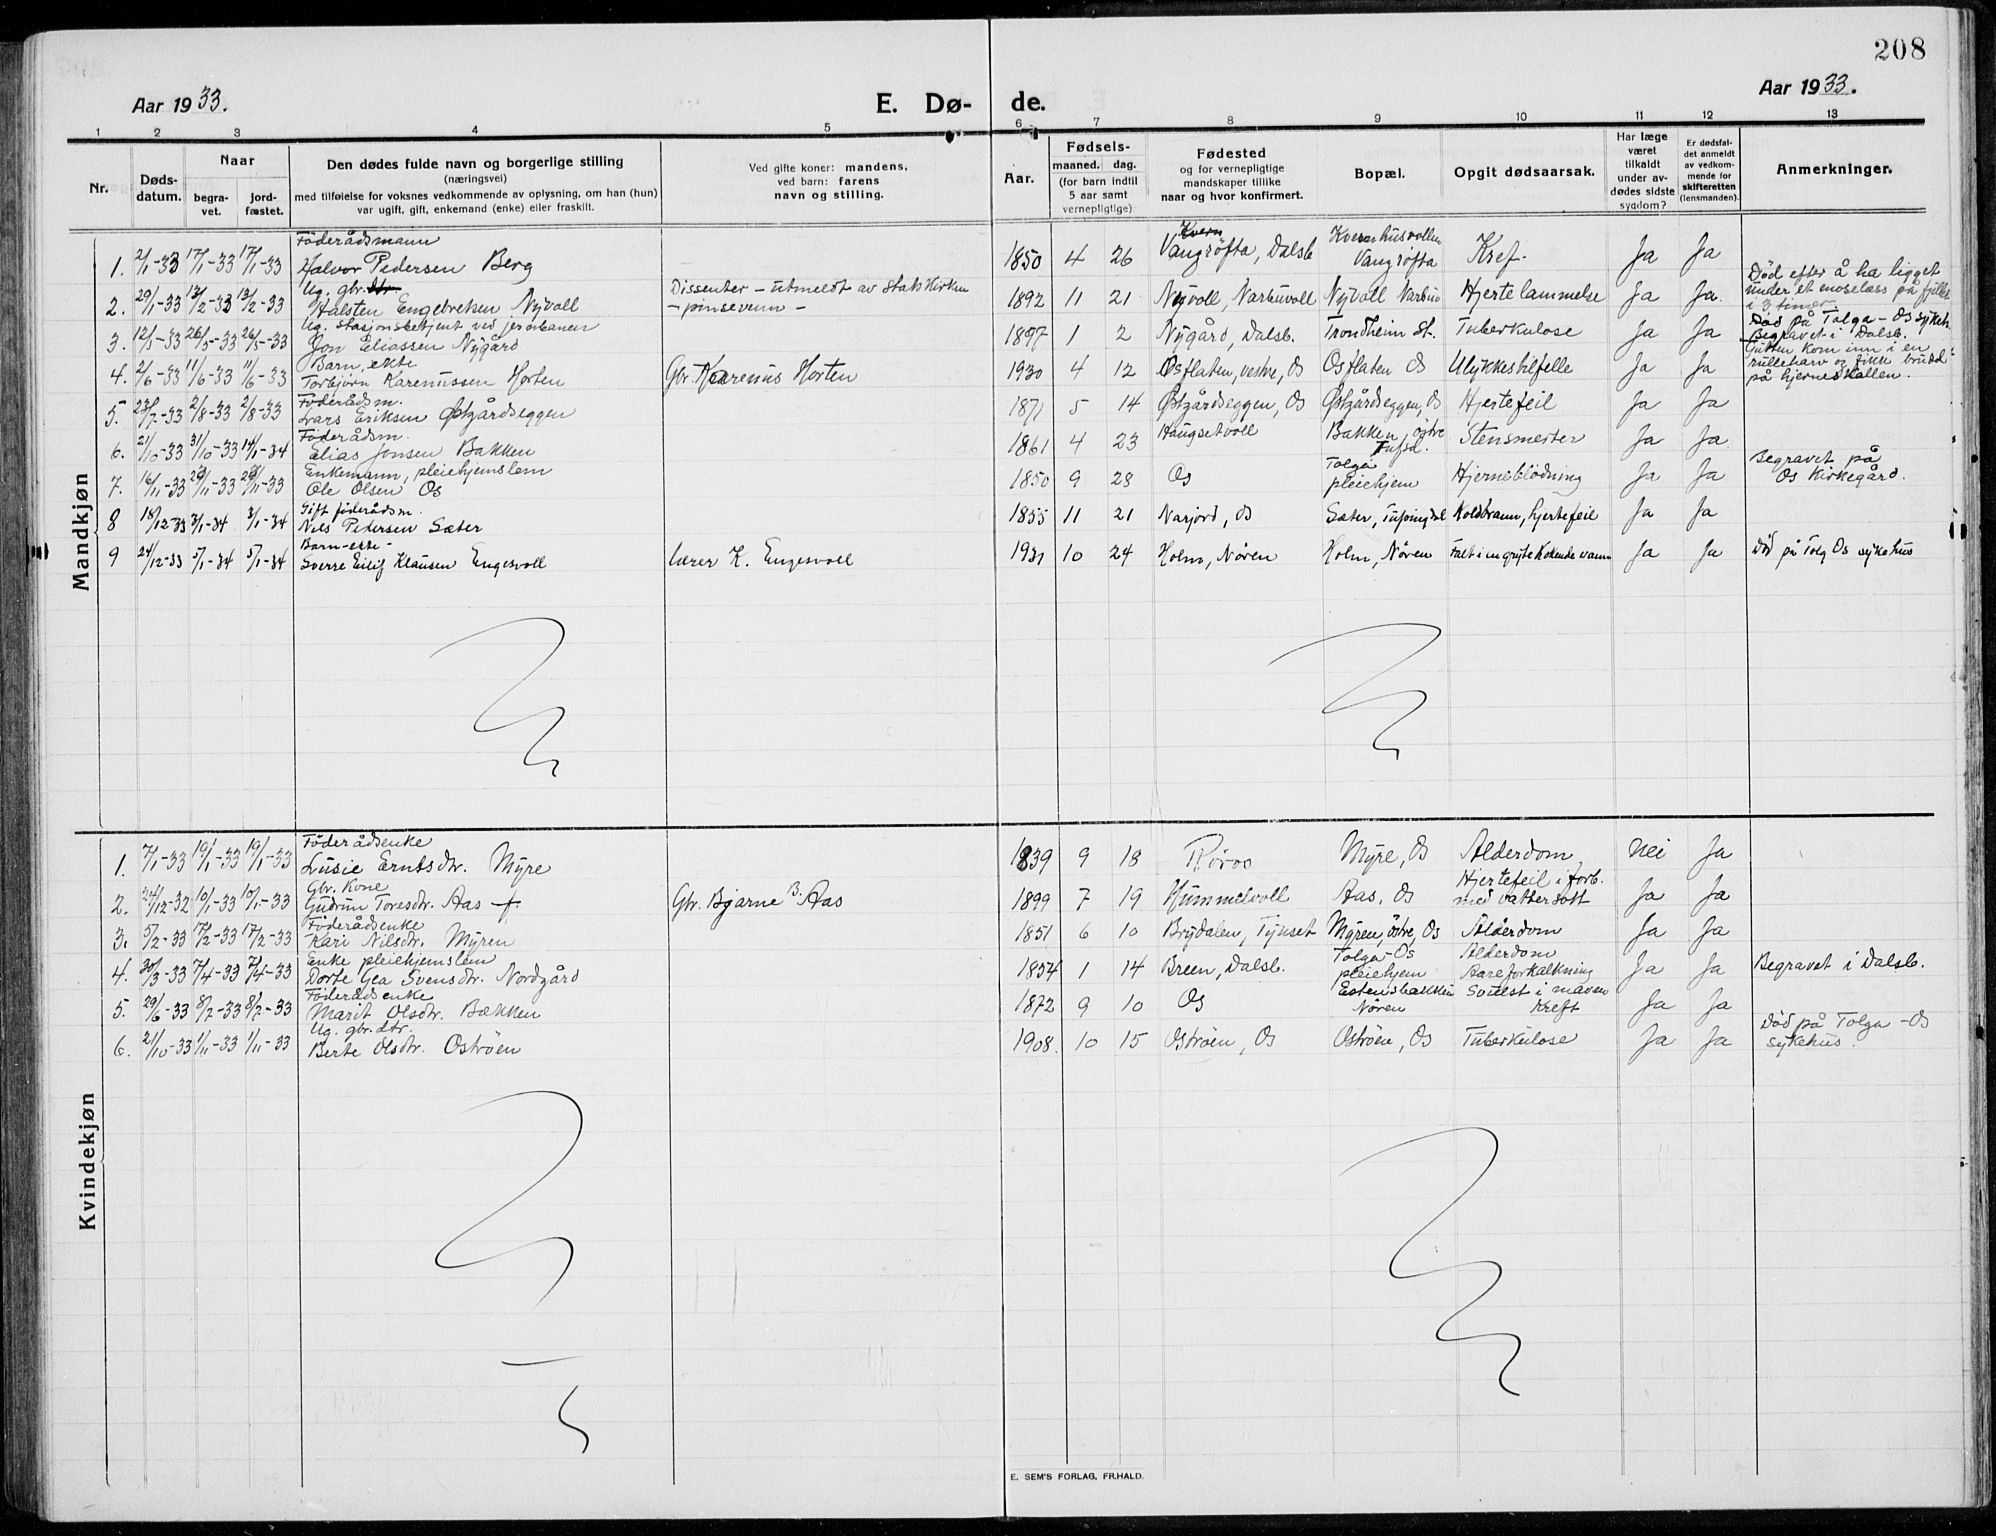 208
Aar 1933.
E. Dø-
de.
Aar 1933.
1 2 3 4 5 6 7 8 9 10 11 12 13
Nr.
Døds-
datum.
Naar
begra-
vet.
jord-
fæstet.
Den dødes fulde navn og borgerlige stilling
(næringsvei)
med tilføielse for voksnes vedkommende av oplysning, om han (hun)
var ugift, gift, enkemand (enke) eller fraskilt.
Ved gifte koner: mandens,
ved barn: farens
navn og stilling.
Aar.
Fødsels-
maaned. dag.
(for barn indtil
5 aar samt
vernepligtige)
Fødested
og for vernepligtige
mandskaper tillike
naar og hvor konfirmert.
Bopæl.
Opgit dødsaarsak.
Har læge
været
tilkaldt
under av-
dødes sidste
sygdom?
Er dødsfal-
det anmeldt
av vedkom-
mende for
skifteretten
(lensmanden).
Anmerkninger.
Mandkjøn
Föderådsmann
1. 2/1-33 17/1-33 17/1-33 Halvor Pedersen Berg 1850 4 26 Kvern Vangröfta, Dalsb Kvernhusvollen Vangröfta Kreft Ja Ja
Ug. gbr.
2. 29/1-33 13/2-33 13/2-33 Halsten Engebretsen Nyvoll Dissenter - utmeldt av Statskirken
- pinsevenn -
1892 11 21 Nyvoll, Narbuvoll Nyvoll Narbuv Hjertelammelse Ja Ja. Död efter å ha ligget
under et moselass på fjellet
i 3 timer
Ug. stasjonsbetjent ved jernbanen
3. 12/5-33 26/5-33 26/5-33 Jon Eliassen Nygård 1897 1 2 Nygård, Dalsb. Trondheim st. Tuberkulose Ja Ja Död på Tolga - Os sykeh.
Begravet i Dalsb.
Barn, ekte
4. 2/6-33 11/6-33 11/6-33 Torbjörn Karenussen Horten Gbr. Karenus Horten 1930 4 12 Osflaten, vestre, Os Osflaten Os Ulykkestilfelle Ja Ja Gutten kom inn i en
rulleharv og fikk brudd
på hjerneskallen.
Föderådsm.
5. 23/7-33 2/8-33 2/8-33 Lars Eriksen Østgårdseggen 1871 5 14 Østgårdseggen, Os Østgårdseggen, Os Hjertefeil Ja Ja
Föderådsm.
6. 21/10-33 31/10-33 14/1-34 Elias Jonsen Bakken 1861 4 23 Haugsetvoll Bakken, östre
Tufsd. Stensmerter Ja Ja
Enkemann, pleiehjemslem
7. 16/11-33 29/11-33 29/11-33 Ole Olsen Os 1850 9 28 Os Tolga
pleiehjem Hjerneblödning Ja Ja Begravet på
Os Kirkegård.
Gift föderådsm.
8 18/12-33 3/1-34 3/1-34 Nils Pedersen Sæter 1855 11 21 Narjord, Os Sæter, Tufsingdal Koldbrann, hjertefeil Ja Ja
Barn-ekte-
9 24/12-33 5/1-34 5/1-34 Sverre Eilif Klausen Engesvoll Lærer K. Engesvoll 1931 10 24 Holm, Nøren Holm, Nøren Falt i en gryte kokende vann Ja Ja Død på Tolg Os sykehus
Kvindekjøn
Föderådsenke
1. 7/1-33 19/1-33 19/1-33 Lusie Erntsdtr. Myre 1839 9 18 Röros Myre, Os Alderdom Nei Ja
Gbr. Kone
2. 24/12-32 10/1-33 10/1-33 Gudrun Toresdtr. Aas Gbr. Bjarne B. Aas 1899 7 19 Hummelvoll Aas, Os Hjertefeil i forb.
med vattersott Ja Ja
Föderådsenke
3. 5/2-33 17/2-33 17/2-33 Kari Nilsdtr. Myren 1851 6 10 Brydalen, Tynset Myren, östre, Os Alderdom Ja Ja
Enke pleiehjemslem
4. 30/3-33 7/4-33 7/4-33 Dorte Gea Svensdtr. Nordgård 1854 1 14 Breen, Dalsb. Tolga-Os
pleiehjem Alderdom
Aareforkalkning Ja Ja Begravet i Dalsb.
Föderådsenke
5. 29/6-33 8/7-33 8/7-33 Marit Olsdtr. Bakken 1872 9 10 Os Estensbakken
Nören Svulst i maven
Kreft Ja Ja
Ug. gbr. dtr.
6. 21/10-33 1/11-33 1/11-33 Berte Olsdtr. Oströen 1908. 10 15 Oströen, Os Oströen, Os Tuberkulose Ja Ja Död på Tolga - Os
sykehus.
E. SEM'S FORLAG, FR.HALD.